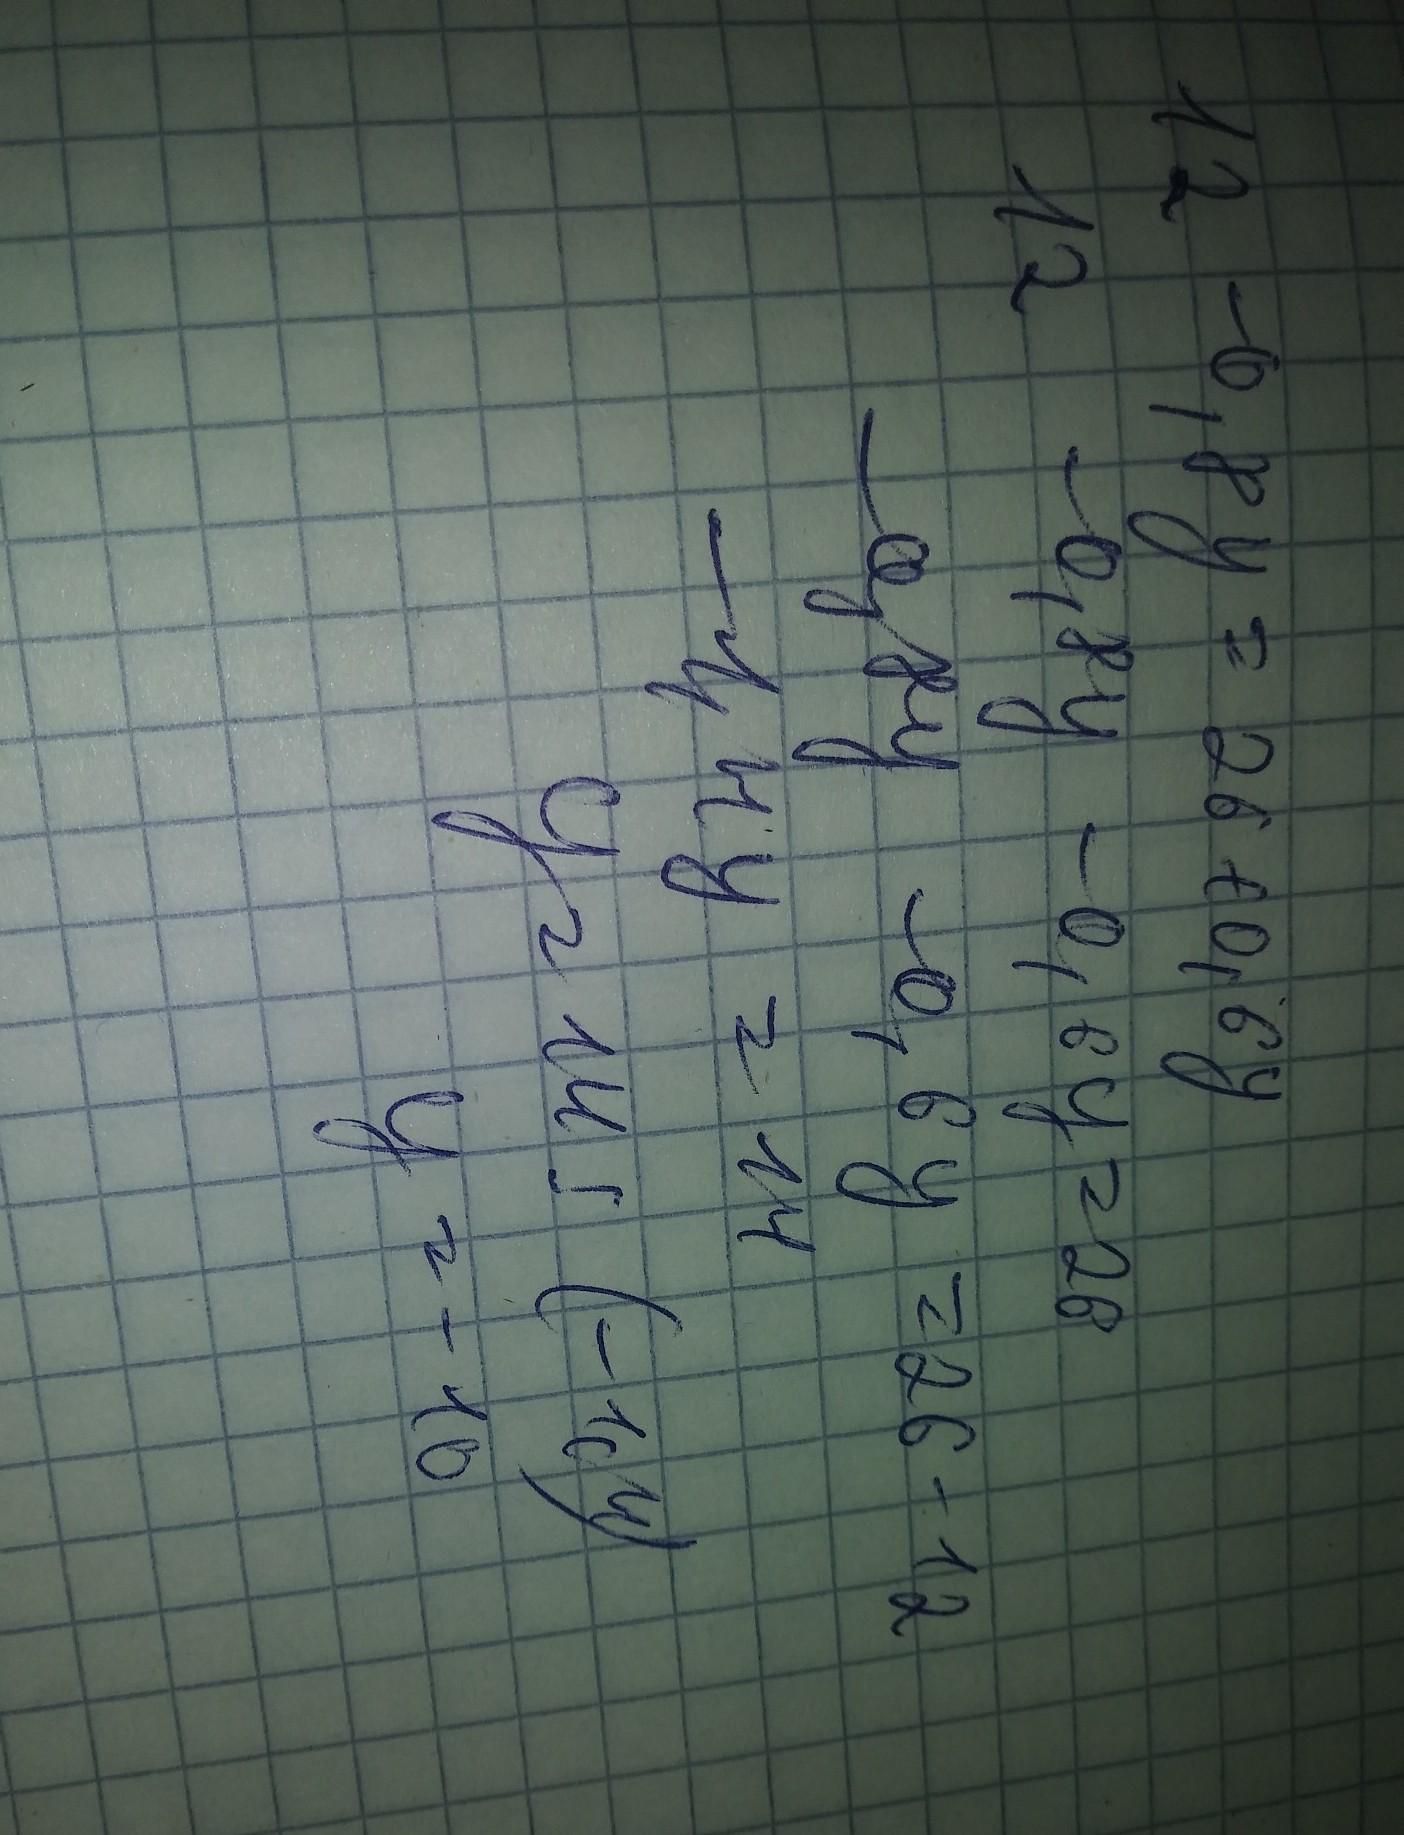 12 -0,8y = 26 +0,6y
12 -0,8y -0,6y = 26
-0,8y -0,6y = 26 - 12
-1,4y = 14
y = 14 : (-1,4)
y = -10